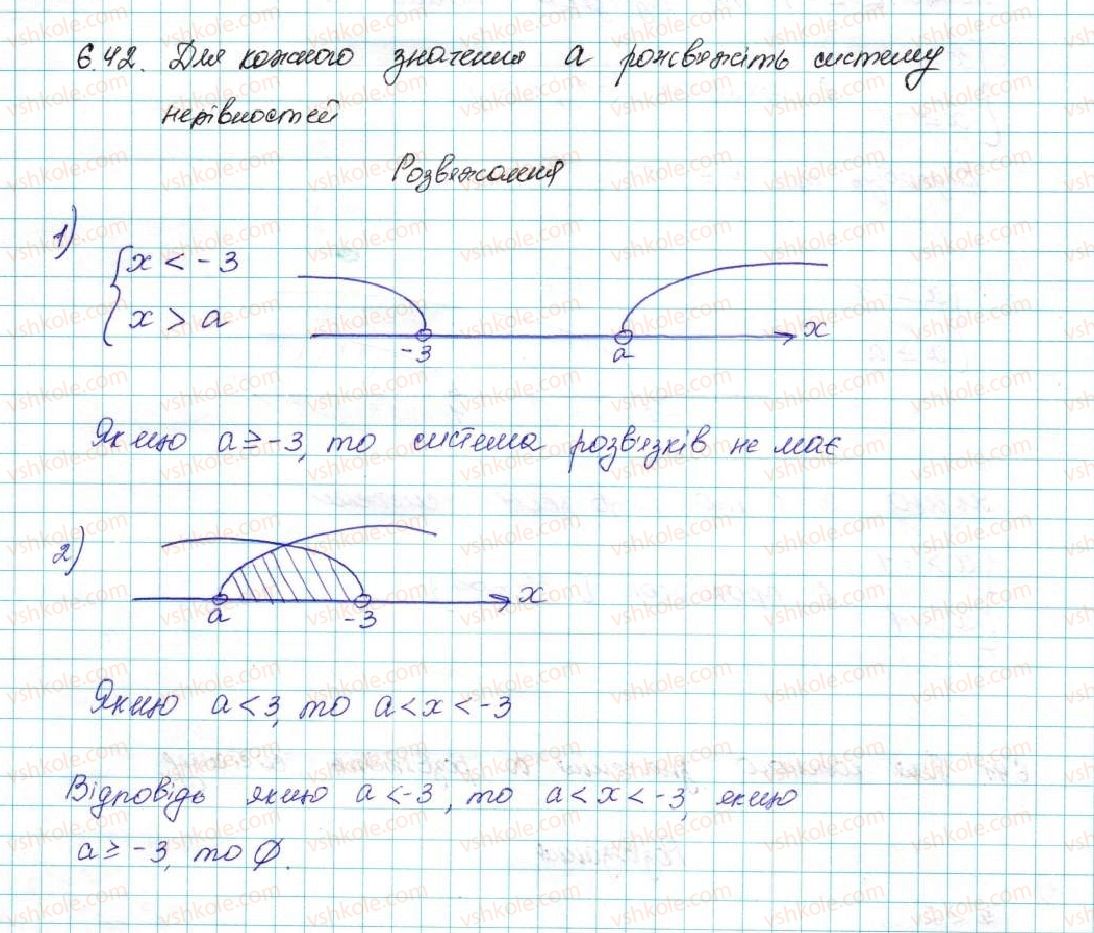 6.42. Для кожного значення a розвяжіть систему
нерівностей
Розвяжання
1)
{ x < -3
x > a
-3 a x
Якщо a ≥ -3, то система розв'язків не має
2)
a -3 x
Якщо a < 3, то a < x < -3
Відповідь якщо a < -3, то a < x < -3, якщо
a ≥ -3, то ∅.
vshkole.com